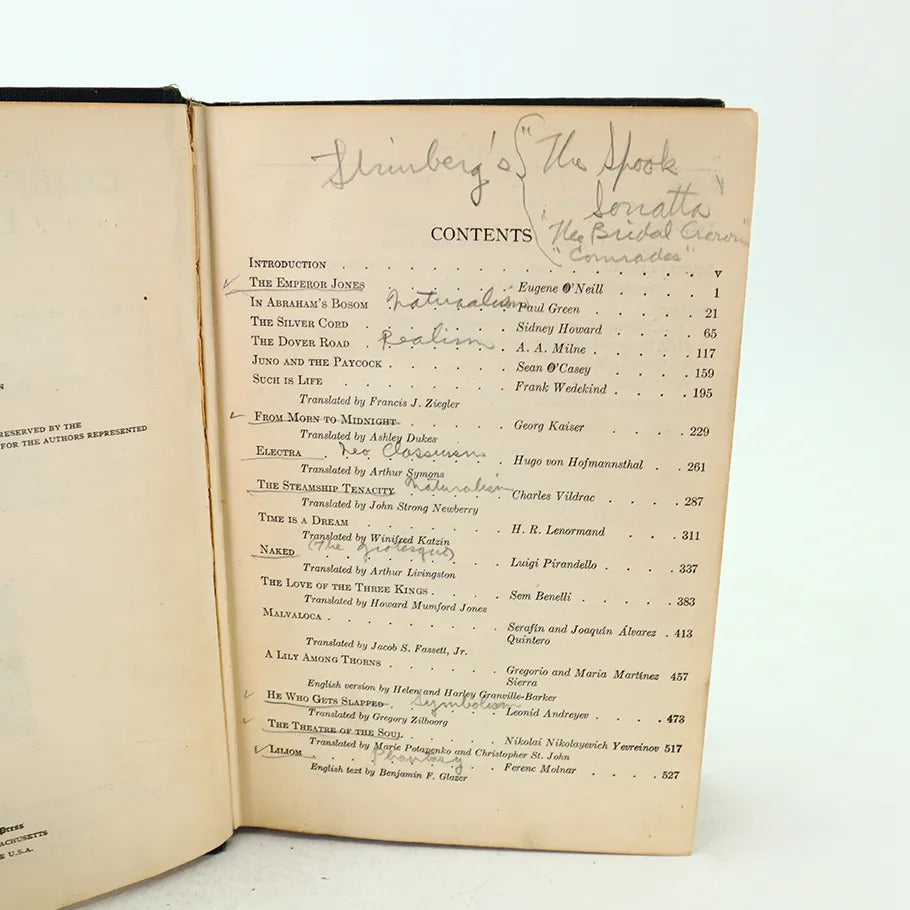 CHIE
N
RESERVED BY THE
FOR THE AUTHORS REPRESENTED
Press
ACHUSETTS
E U.S.A.
Strinberg's { "The Spook
Sonatta"
"The Bridal Crown"
"Comrades"
CONTENTS
INTRODUCTION . . . . . . . . . . . . v
✓ THE EMPEROR JONES . . . . Eugene O'Neill . . . . 1
IN ABRAHAM'S BOSOM Naturalism Paul Green . . . . . 21
THE SILVER CORD . . . . . . Sidney Howard . . . . 65
THE DOVER ROAD . Realism . A. A. Milne . . . . . 117
JUNO AND THE PAYCOCK . . . . . . Sean O'Casey . . . . . 159
SUCH IS LIFE . . . . . . . Frank Wedekind . . . . 195
Translated by Francis J. Ziegler
✓ FROM MORN TO MIDNIGHT . . . . Georg Kaiser . . . . . 229
Translated by Ashley Dukes
ELECTRA . Neo Classicism Hugo von Hofmannsthal . . 261
Translated by Arthur Symons
THE STEAMSHIP TENACITY Naturalism Charles Vildrac . . . . 287
Translated by John Strong Newberry
TIME IS A DREAM . . . . . . H. R. Lenormand . . . . 311
Translated by Winifred Katzin
NAKED (The Grotesque) Luigi Pirandello . . . . 337
Translated by Arthur Livingston
THE LOVE OF THE THREE KINGS . . . . Sem Benelli . . . . . 383
Translated by Howard Mumford Jones
MALVALOCA . . . . . . . Serafín and Joaquín Álvarez . 413
Quintero
Translated by Jacob S. Fassett, Jr.
A LILY AMONG THORNS . . . . . Gregorio and Maria Martínez 457
Sierra
English version by Helen and Harley Granville-Barker
✓ HE WHO GETS SLAPPED . Symbolism Leonid Andreyev . . . . 473
Translated by Gregory Zilboorg
✓ THE THEATRE OF THE SOUL . . . . Nikolai Nikolayevich Yevreinov 517
Translated by Marie Potapenko and Christopher St. John
✓ LILIOM . . Phantasy Ferenc Molnar . . . . 527
English text by Benjamin F. Glazer